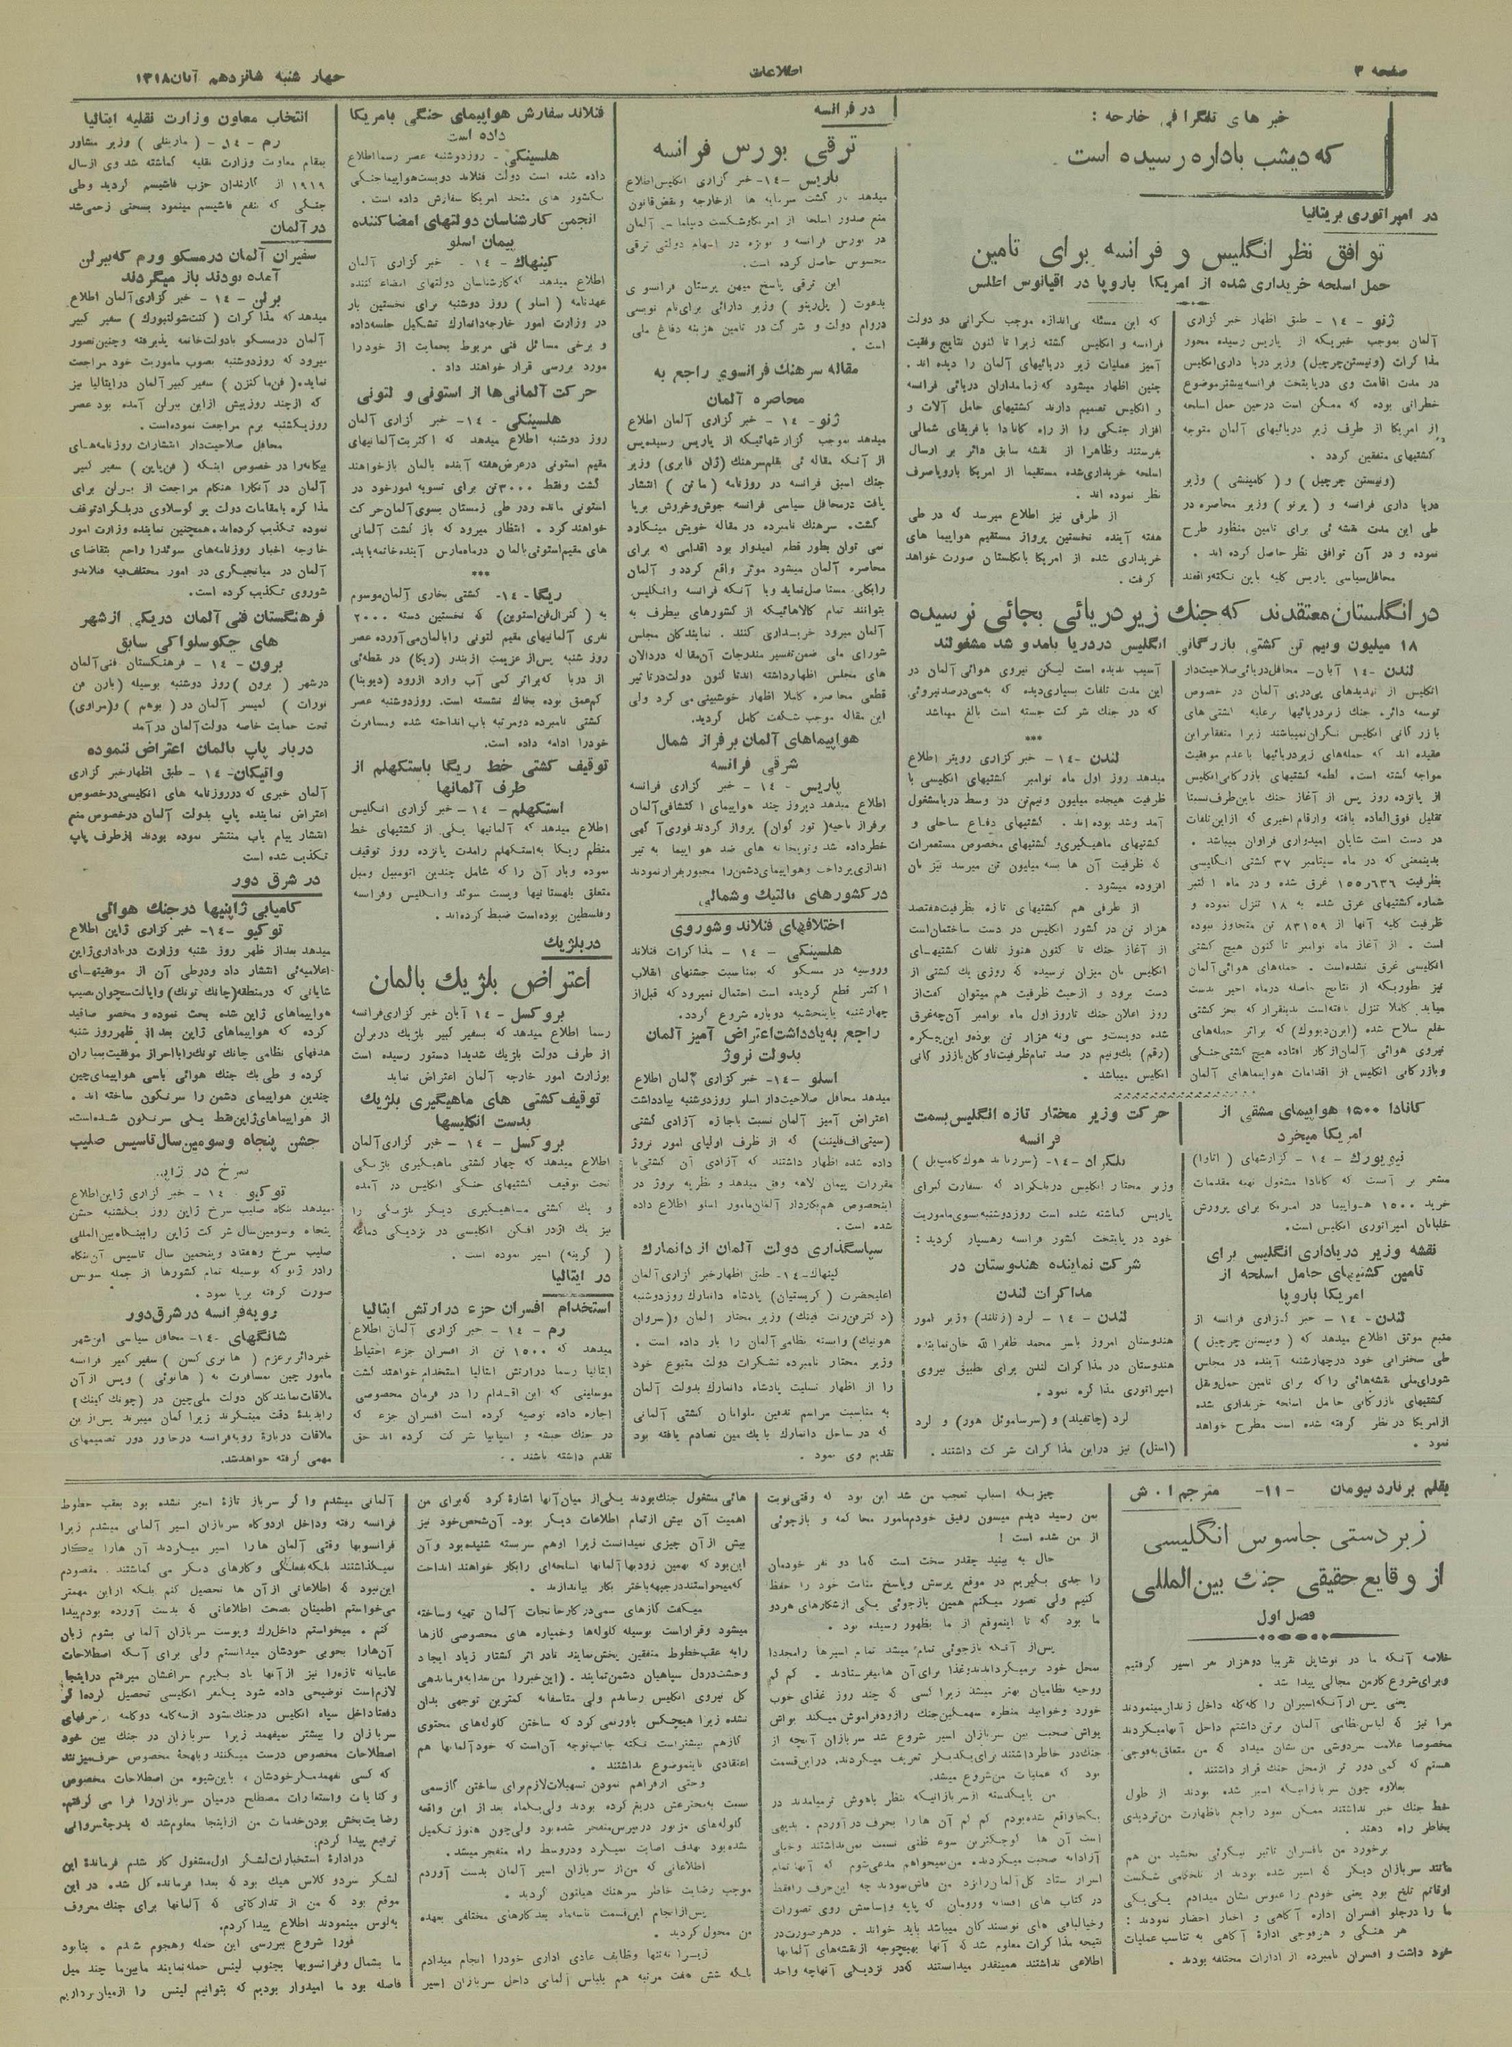 صفحه ۳
اطلاعات
چهار شنبه شانزدهم آبان ۱۳۱۸
خبر های تلگرافی خارجه :
که دیشب باداره رسیده است
در امپراتوری بریتانیا
توافق نظر انگلیس و فرانسه برای تامین
حمل اسلحه خریداری شده از امریکا باروپا در اقیانوس اطلس
ژنو - ۱۴ - طبق اظهار خبر گزاری
آلمان بموجب خبریکه از پاریس رسیده محور
مذاکرات (وینستن چرچیل) وزیر دریا داری انگلیس
در مدت اقامت وی در پایتخت فرانسه بیشتر موضوع
خطراتی بوده که ممکن است در حین حمل اسلحه
از امریکا از طرف زیر دریائیهای آلمان متوجه
کشتیهای متفقین گردد .
(وینستن چرچیل) و (کامپینشی) وزیر
دریا داری فرانسه و (پرنو) وزیر محاصره در
طی این مدت نقشه ئی برای تامین منظور طرح
نموده و در آن توافق نظر حاصل کرده اند .
محافل سیاسی پاریس کلیه باین نکته واقفند
که این مسئله بی اندازه موجب نگرانی دو دولت
فرانسه و انگلیس گشته زیرا تا کنون نتایج وفقیت
آمیز عملیات زیر دریائیهای آلمان را دیده اند .
چنین اظهار میشود که زمامداران دریائی فرانسه
و انگلیس تصمیم دارند کشتیهای حامل آلات و
افزار جنگی را از راه کانادا با فریقای شمالی
بفرستند وظاهرا از نقشه سابق دائر بر ارسال
اسلحه خریداری شده مستقیما از امریکا باروپا صرف
نظر نموده اند .
از طرفی نیز اطلاع میرسد که در طی
هفته آینده نخستین پرواز مستقیم هواپیما های
خریداری شده از امریکا بانگلستان صورت خواهد
گرفت .
در انگلستان معتقدند که جنك زیر دریائی بجائی نرسیده
۱۸ میلیون ونیم تن کشتی بازرگانی انگلیس در دریا بامد و شد مشغولند
لندن -۱۴ آبان- محافل دریائی صلاحیت دار
انگلیس از تهدیدهای پی در پی آلمان در خصوص
توسعه دائره جنك زیر دریائیها بر علیه کشتی های
بازرگانی انگلیس نگران نمیباشند زیرا متفقا براین
عقیده اند که حمله های زیر دریائیها با عدم موفقیت
مواجه گشته است. لطمه کشتیهای بازرگانی انگلیس
از پانزده روز پس از آغاز جنك باین طرف نسبتا
تقلیل فوق العاده یافته وارقام اخیری که از این تلفات
در دست است شایان امیدواری فراوان میباشد .
بدینمعنی که در ماه سپتامبر ۳۷ کشتی انگلیسی
بظرفیت ۱۵۵٫۶۳۶ غرق شده و در ماه اکتبر
شماره کشتیهای غرق شده به ۱۸ تنزل نموده و
ظرفیت کلیه آنها از ۸۳۱۵۹ تن متجاوز نبوده
است . از آغاز ماه نوامبر تا کنون هیچ کشتی
انگلیسی غرق نشده است . حمله های هوائی آلمان
نیز بطوریکه از نتایج حاصله در ماه اخیر بدست
میاید کاملا تنزل یافته است بدینقرار که بجز کشتی
خلع سلاح شده (ایرن دیوك) که براثر حمله های
نیروی هوائی آلمان از کار افتاده هیچ کشتی جنگی
وبازرگانی انگلیس از اقدامات هواپیماهای آلمان
آسیب ندیده است لیکن نیروی هوائی آلمان در
این مدت تلفات بسیاری دیده که به سی در صد نیروئی
که در جنك شرکت جسته است بالغ میباشد
***
لندن -۱۴- خبر گزاری رویتر اطلاع
میدهد روز اول ماه نوامبر کشتیهای انگلیسی با
ظرفیت هیجده میلیون ونیم تن در وسط دریا مشغول
آمد وشد بوده اند . کشتیهای دفاع ساحلی و
کشتیهای ماهیگیری و کشتیهای مخصوص مستعمرات
که ظرفیت آن ها سه میلیون تن میرسد نیز بان
افزوده میشود .
از طرفی هم کشتیهای تازه بظرفیت هفتصد
هزار تن در کشور انگلیس در دست ساختمان است
از آغاز جنك تا کنون هنوز تلفات کشتیهای
انگلیس بان میزان نرسیده که روزی یك کشتی از
دست برود و از حیث ظرفیت هم میتوان گفت از
روز اعلان جنك تا روز اول ماه نوامبر آنچه غرق
شده دویست و سی ونه هزار تن بوده و این پیکره
(رقم) یك ونیم در صد تمام ظرفیت ناوگان بازرگانی
انگلیس میباشد .
کانادا ۱۵۰۰ هواپیمای مشقی از
امریکا میخرد
نیویورك - ۱۴ - گزارشهای (اتاوا)
مشعر بر آنست که کانادا مشغول تهیه مقدمات
خرید ۱۵۰۰ هواپیما در امریکا برای پرورش
خلبانان امپراتوری انگلیس است.
نقشه وزیر دریاداری انگلیس برای
تامین کشتیهای حامل اسلحه از
امریکا باروپا
لندن - ۱۴ - خبر گزاری فرانسه از
منبع موثق اطلاع میدهد که (وینستن چرچیل)
طی سخنرانی خود در چهارشنبه آینده در مجلس
شورای ملی نقشه هائی را که برای تامین حمل ونقل
کشتیهای بازرگانی حامل اسلحه خریداری شده
از امریکا در نظر گرفته شده است مطرح خواهد
نمود .
حرکت وزیر مختار تازه انگلیس بسمت
فرانسه
بلگراد -۱۴- (سررنالد هوك کامپبل)
وزیر مختار انگلیس در بلگراد که بسفارت کبرای
پاریس گماشته شده است روز دوشنبه بسوی ماموریت
خود در پایتخت کشور فرانسه رهسپار گردید :
شرکت نماینده هندوستان در
مذاکرات لندن
لندن - ۱۴ - لرد (زتلند) وزیر امور
هندوستان امروز باسر محمد ظفرا لله خان نماینده
هندوستان در مذاکرات لندن برای تطبیق نیروی
امپراتوری مذاکره نمود .
لرد (چاتفیلد) و (سرساموئل هور) و لرد
(استل) نیز در این مذاکرات شرکت داشتند .
در فرانسه
ترقی بورس فرانسه
پاریس -۱۴- خبر گزاری انگلیس اطلاع
میدهد بازگشت سرمایه ها از خارجه و نقض قانون
منع صدور اسلحه از امریکا وشکست دیپلماسی آلمان
در بورس فرانسه و بویژه در اسهام دولتی ترقی
محسوس حاصل کرده است .
این ترقی پاسخ میهن پرستان فرانسوی
بدعوت (پل رینو) وزیر دارائی برای نام نویسی
در وام دولت و شرکت در تامین هزینه دفاع ملی
است .
مقاله سرهنك فرانسوی راجع به
محاصره آلمان
ژنو -۱۴ - خبر گزاری آلمان اطلاع
میدهد بموجب گزارشهائیکه از پاریس رسیده پس
از آنکه مقاله ئی بقلم سرهنك (ژان فابری) وزیر
جنك اسبق فرانسه در روزنامه (ماتن) انتشار
یافت در محافل سیاسی فرانسه جوش وخروش برپا
گشت. سرهنك نامبرده در مقاله خویش مینگارد
نمی توان بطور قطع امیدوار بود اقدامی که برای
محاصره آلمان میشود موثر واقع گردد و آلمان
را بکلی مستاصل نماید و با آنکه فرانسه وانگلیس
بتوانند تمام کالاهائیکه از کشورهای بیطرف به
آلمان میرود خریداری کنند . نمایندگان مجلس
شورای ملی ضمن تفسیر مندرجات آن مقاله در دالان
های مجلس اظهار داشته اند تا کنون دولت در تاثیر
قطعی محاصره کاملا اظهار خوشبینی می کرد ولی
این مقاله موجب شگفت کامل گردید.
هواپیماهای آلمان بر فراز شمال
شرقی فرانسه
پاریس - ۱۴ - خبر گزاری فرانسه
اطلاع میدهد دیروز چند هواپیمای اکتشافی آلمان
برفراز ناحیه (تور کوان) پرواز کردند فوری آگهی
خطر داده شد و توپخانه های ضد هواپیما به تیر
اندازی پرداخت وهواپیمای دشمن را مجبور بفرار نمودند
در کشورهای بالتیك و شمالی
اختلافهای فنلاند وشوروی
هلسینکی - ۱۴ - مذاکرات فنلاند
وروسیه در مسکو که بمناسبت جشنهای انقلاب
اکتبر قطع گردیده است احتمال نمیرود که قبل از
چهارشنبه یا پنجشنبه دوباره شروع گردد.
راجع به یادداشت اعتراض آمیز آلمان
بدولت نروژ
اسلو -۱۴- خبر گزاری آلمان اطلاع
میدهد محافل صلاحیت دار اسلو روز دوشنبه بیادداشت
اعتراض آمیز آلمان نسبت باجازه آزادی کشتی
(سیتی اف فلینت) که از طرف اولیای امور نروژ
داده شده اظهار داشتند که آزادی آن کشتی با
مقررات پیمان لاهه وفق میدهد و نظریه نروژ در
اینخصوص هم بکاردار آلمان مامور اسلو اطلاع داده
شده است .
سپاسگذاری دولت آلمان از دانمارك
کپنهاك -۱۴- طبق اظهار خبر گزاری آلمان
اعلیحضرت (کریستیان) پادشاه دانمارك روز دوشنبه
(دکتر فن رنت فینك) وزیر مختار آلمان و(سروان
هونیك) وابسته نظامی آلمان را بار داده است .
وزیر مختار نامبرده تشکرات دولت متبوع خود
را از اظهار تسلیت پادشاه دانمارك بدولت آلمان
به مناسبت مراسم تدفین ملوانان کشتی آلمانی
که در ساحل دانمارك با یك مین تصادم یافته بود
تقدیم وی نمود .
فنلاند سفارش هواپیمای جنگی بامریکا
داده است
هلسینکی - روز دوشنبه عصر رسما اطلاع
داده شده است دولت فنلاند دویست هواپیما جنگی
بکشور های متحد امریکا سفارش داده است .
انجمن کارشناسان دولتهای امضا کننده
پیمان اسلو
کپنهاك - ۱۴ - خبر گزاری آلمان
اطلاع میدهد که کارشناسان دولتهای امضاء کننده
عهدنامه (اسلو) روز دوشنبه برای نخستین بار
در وزارت امور خارجه دانمارك تشکیل جلسه داده
و برخی مسائل فنی مربوط بحمایت از خود را
مورد بررسی قرار خواهند داد .
حرکت آلمانی ها از استونی و لتونی
هلسینکی -۱۴- خبر گزاری آلمان
روز دوشنبه اطلاع میدهد که اکثریت آلمانیهای
مقیم استونی در عرض هفته آینده بالمان بازخواهند
گشت وفقط ۳۰۰۰ تن برای تسویه امور خود در
استونی مانده ودر طی زمستان بسوی آلمان حرکت
خواهند کرد . انتظار میرود که بازگشت آلمانی
های مقیم استونی بالمان در ماه مارس آینده خاتمه یابد.
***
ریگا -۱۴- کشتی بخاری آلمان موسوم
به (گنرال فن استوبن) که نخستین دسته ۲۰۰۰
نفری آلمانیهای مقیم لتونی را بالمان می آورده عصر
روز شنبه پس از عزیمت از بندر (ریگا) در نقطه ئی
از دریا که براثر کمی آب وارد از رود (دیوینا)
کم عمق بوده بخاك نشسته است. روز دوشنبه عصر
کشتی نامبرده دو مرتبه باب انداخته شده ومسافرت
خود را ادامه داده است.
توقیف کشتی خط ریگا باستکهلم از
طرف آلمانها
استکهلم - ۱۴- خبر گزاری انگلیس
اطلاع میدهد که آلمانیها یکی از کشتیهای خط
منظم ریگا به استکهلم را مدت پانزده روز توقیف
نموده وبار آن را که شامل چندین اتومبیل ومبل
متعلق بلهستانیها وپست سوئد وانگلیس وفرانسه
وفلسطین بوده است ضبط کرده اند .
در بلژیك
اعتراض بلژیك بالمان
بروکسل - ۱۴ آبان خبر گزاری فرانسه
رسما اطلاع میدهد که سفیر کبیر بلژیك در برلن
از طرف دولت بلژیك شدیدا دستور رسیده است
بوزارت امور خارجه آلمان اعتراض نماید
توقیف کشتی های ماهیگیری بلژیك
بدست انگلیسها
بروکسل - ۱۴ - خبر گزاری آلمان
اطلاع میدهد که چهار کشتی ماهیگیری بلژیکی
تحت توقیف کشتیهای جنگی انگلیس در آمده
و یك کشتی ماهیگیری دیگر بلژیکی را
نیز یك اژدر افکن انگلیسی در نزدیکی دماغه
(گرینه) اسیر نموده است .
در ایتالیا
استخدام افسران جزء در ارتش ایتالیا
رم - ۱۴ - خبر گزاری آلمان اطلاع
میدهد که ۱۵۰۰ تن از افسران جزء احتیاط
ایتالیا رسما در ارتش ایتالیا استخدام خواهند گشت
موسلینی که این اقدام را در فرمان مخصوصی
اجازه داده توصیه کرده است افسران جزء که
در جنك حبشه و اسپانیا شرکت کرده اند حق
تقدم داشته باشند . .
انتخاب معاون وزارت نقلیه ایتالیا
رم - ۱۴ - (مارینلی) وزیر مشاور
بمقام معاونت وزارت نقلیه گماشته شد وی از سال
۱۹۱۹ از کارندان حزب فاشیسم گردید وطی
جنگی که بنفع فاشیسم مینمود بسختی زخمی شد
در آلمان
سفیران آلمان در مسکو ورم که ببرلن
آمده بودند باز میگردند
برلن - ۱۴ - خبر گزاری آلمان اطلاع
میدهد که مذاکرات (کنت شولنبورك) سفیر کبیر
آلمان در مسکو با دولت خاتمه پذیرفته وچنین تصور
میرود که روز دوشنبه بصوب ماموریت خود مراجعت
نماید. (فن ماکنزن) سفیر کبیر آلمان در ایتالیا نیز
که از چند روز پیش از این ببرلن آمده بود عصر
روز یکشنبه برم مراجعت نموده است .
محافل صلاحیت دار انتشارات روزنامه های
بیگانه را در خصوص اینکه (فن پاپن) سفیر کبیر
آلمان در آنکارا هنگام مراجعت از برلن برای
مذاکره با مقامات دولت یوگوسلاوی در بلگراد توقف
نموده تکذیب کرده اند. همچنین نماینده وزارت امور
خارجه اخبار روزنامه های سوئد را راجع بتقاضای
آلمان در میانجیگری در امور مختلف فیه فنلاند و
شوروی تکذیب کرده است .
فرهنگستان فنی آلمان در یکی از شهر
های چکوسلواکی سابق
برون - ۱۴ - فرهنگستان فنی آلمان
در شهر (برون) روز دوشنبه بوسیله (بارن فن
نورات) کمیسر آلمان در (بوهم) و(مراوی)
تحت حمایت خاصه دولت آلمان در آمد
دربار پاپ بالمان اعتراض ننموده
واتیکان - ۱۴ - طبق اظهار خبر گزاری
آلمان خبری که در روزنامه های انگلیسی در خصوص
اعتراض نماینده پاپ بدولت آلمان در خصوص منع
انتشار پیام پاپ منتشر نموده بودند از طرف پاپ
تکذیب شده است
در شرق دور
کامیابی ژاپنیها در جنك هوائی
توکیو -۱۴- خبر گزاری ژاپن اطلاع
میدهد بعد از ظهر روز شنبه وزارت دریاداری ژاپن
اعلامیه ئی انتشار داد ودر طی آن از موفقیتهای
شایانی که در منطقه (چانك تونك) وایالت سچوان نصیب
هواپیماهای ژاپن شده بحث نموده و مخصوصا قید
کرده که هواپیماهای ژاپن بعد از ظهر روز شنبه
هدفهای نظامی چانك تونك را با احراز موفقیت بمباران
کرده و طی یك جنك هوائی با سی هواپیمای چین
چندین هواپیمای دشمن را سرنگون ساخته اند .
از هواپیماهای ژاپن فقط یکی سرنگون شده است.
جشن پنجاه وسومین سال تاسیس صلیب
سرخ در ژاپن
توکیو - ۱۴ - خبر گزاری ژاپن اطلاع
میدهد بنگاه صلیب سرخ ژاپن روز یکشنبه جشن
پنجاه وسومین سال شرکت ژاپن را ببنگاه بین المللی
صلیب سرخ وهفتاد وپنجمین سال تاسیس آن بنگاه
را در ژنو که بوسیله تمام کشورها از جمله سویس
صورت گرفته برپا نمود .
رویه فرانسه در شرق دور
شانگهای -۱۴- محافل سیاسی این شهر
خبر دائر بر عزیمت (هانری کسن) سفیر کبیر فرانسه
مامور چین بمسافرت به (هانوئی) وپس از آن
ملاقات نمایندگان دولت ملی چین در (چونك کینك)
را بدیدهٔ دقت مینگرند زیرا گمان میبرند پس از این
ملاقات دربارهٔ رویه فرانسه در خاور دور تصمیمهای
مهمی گرفته خواهد شد.
بقلم برنارد نیومان -۱۱- مترجم ا . ش
زبردستی جاسوس انگلیسی
از وقایع حقیقی جنك بین المللی
فصل اول
خلاصه آنکه ما در نوشاپل تقریبا دوهزار نفر اسیر گرفتیم
وبرای شروع کار من مجالی پیدا شد .
یعنی پس از آنکه اسیران را گله گله داخل زندان مینمودند
مرا نیز که لباس نظامی آلمان برتن داشتم داخل آنها میکردند
مخصوصا علامت سردوشی من نشان میداد که من متعلق به فوجی
هستم که کمی دور تر از محل جنك قرار داشتند .
بعلاوه چون سربازانیکه اسیر شده بودند از طول
خط جنك خبر نداشتند ممکن نبود راجع باظهارات من تردیدی
بخاطر راه دهند .
برخورد من بافسران تاثیر نیکوئی بخشید من هم
مانند سربازان دیگر که اسیر شده بودند از تلخکامی شکست
اوقاتم تلخ بود یعنی خودم را عبوس نشان میدادم یکی یکی
ما را در جلو افسران اداره آگاهی و اخبار احضار نمودند :
هر هنگی و هر فوجی ادارهٔ آگاهی به تناسب عملیات
خود داشت و افسران نامبرده از ادارات مختلفه بودند .
چیزیکه اسباب تعجب من شد این بود که وقتی نوبت
بمن رسید دیدم میسون رفیق خودم مامور محاکمه و بازجوئی
از من شده است !
حال به بینید چقدر سخت است که ما دو نفر خودمان
را جدی بگیریم در موقع پرسش وپاسخ متانت خود را حفظ
کنیم ولی تصور میکنم همین بازجوئی یکی از شکارهای هردو
ما بود که تا اینموقع از ما بظهور رسیده بود .
پس از آنکه بازجوئی تمام میشد تمام اسیرها را مجددا
بمحل خود برمیگرداندند و غذا برای آن ها میفرستادند . کم کم
روحیه نظامیان بهتر میشد زیرا کسی که چند روز غذای خوب
خورد وخوابید منظره سهمگین جنك را زود فراموش میکند یواش
یواش صحبت بین سربازان اسیر شروع شد سربازان آنچه از
جنك در خاطر داشتند برای یکدیگر تعریف میکردند. در این قسمت
بود که عملیات من شروع میشد.
من با یکدسته از سربازانیکه بنظر باهوش ترمیامدند در
یکجا واقع شده بودم کم کم آن ها را بحرف در آوردم . بدیهی
است آن ها کوچکترین سوء ظنی نسبت بمن نداشتند وخیلی
آزادانه صحبت میکردند. من نمیخواهم مدعی شوم که آنها تمام
اسرار ستاد کل آلمان را نزد من فاش نمودند چه این حرف را فقط
در کتاب های افسانه ورومان که پایه واساسش روی تصورات
وخیالبافی های نویسندگان میباشد باید خواند . در هر صورت در
نتیجه مذاکرات معلوم شد که آنها بهیچوجه از نقشه های آلمانها
اطلاعی نداشتند همینقدر میدانستند که در نزدیکی آنها چه واحد
هائی مشغول جنك بودند یکی از میان آنها اشاره کرد که برای من
اهمیت آن بیش از تمام اطلاعات دیگر بود. آن شخص خود نیز
بیش از آن چیزی نمیدانست زیرا او هم سربسته شنیده بود و آن
این بود که بهمین زودیها آلمانها اسلحه ای را بکار خواهند انداخت
که میخواستند در جبهه باختر بکار بیاندازند.
میگفت گازهای سمی در کارخانجات آلمان تهیه وساخته
میشود وقرار است بوسیله گلوله ها وخمپاره های مخصوصی گازها
را به عقب خطوط متفقین پخش نمایند تا در اثر کشتار زیاد ایجاد
وحشت در دل سپاهیان دشمن نمایند . (این خبر را من حتی بفرماندهی
کل نیروی انگلیس رساندم ولی متاسفانه کمترین توجهی بدان
نشده زیرا هیچکس باور نمی کرد که ساختن گلوله های محتوی
گاز هم بیشتر است نکته جالب توجه آن است که خود آلمانها هم
اعتقادی باینموضوع نداشتند .
وحتی از فراهم نمودن تسهیلات لازم برای ساختن گاز سمی
نسبت به مخترعش دریغ کرده بودند ولی یکماه بعد از این واقعه
گلوله های مزبور در پرس منفجر شده بود ولی چون هنوز تکمیل
نشده بود بهدف اصابت نمیکرد ودر وسط راه منفجر میشد.
اطلاعاتی که من از سربازان اسیر آلمان بدست آوردم
موجب رضایت خاطر سرهنك هیاتون گردید .
پس از انجام این قسمت تا سه ماه بعد کارهای مختلفی بعهده
من محول گردید .
زیرا نه تنها وظایف عادی اداری خود را انجام میدادم
بلکه شش هفت مرتبه هم بلباس آلمانی داخل سربازان اسیر
آلمانی میشدم واگر سرباز تازهٔ اسیر نشده بود بعقب خطوط
فرانسه رفته وداخل اردوگاه سربازان اسیر آلمانی میشدم زیرا
فرانسویها وقتی آلمان هارا اسیر میکردند آن هارا بیکار
نمیگذاشتند بلکه بعملگی وکارهای دیگر می گماشتند . مقصودم
این نبود که اطلاعاتی از آن ها تحصیل کنم بلکه از این مهمتر
می خواستم اطمینان بصحت اطلاعاتی که بدست آورده بودم پیدا
کنم . میخواستم داخل رگ وپوست سربازان آلمانی بشوم زبان
آن هارا بخوبی خودشان میدانستم ولی برای آنکه اصطلاحات
عامیانه تازه را نیز از آنها یاد بگیرم سراغشان میرفتم در اینجا
لازم است توضیحی داده شود یکنفر انگلیسی تحصیل کرده اگر
دفعتا داخل سپاه انگلیس در جنك شود از سه کلمه دو کلمه از حرفهای
سربازان را بیشتر نمیفهمد زیرا سربازان در جنك بین خود
اصطلاحات مخصوص درست میکنند وبلهجهٔ مخصوص حرف میزنند
که کسی نفهمد مگر خودشان ، باین شیوه من اصطلاحات مخصوص
وکنایات واستعارات مصطلح در میان سربازان را فرا می گرفتم.
رضایت بخش بودن خدمات من از اینجا معلوم شد که بدرجهٔ سروانی
ترفیع پیدا کردم.
در ادارهٔ استخبارات لشکر اول مشغول کار شدم فرماندهٔ این
لشکر سردوگلاس هیك بود که بعدا فرمانده کل شد. در این
موقع بود که من از تدارکاتی که آلمانها برای جنك معروف
به لوس مینمودند اطلاع پیدا کردم.
فورا شروع ببررسی این حمله وهجوم شدم . بنا بود
ما بشمال وفرانسویها بجنوب لینس حمله نمایند مابین ما چند میل
فاصله بود ما امیدوار بودیم که بتوانیم لینس را از میان برداریم